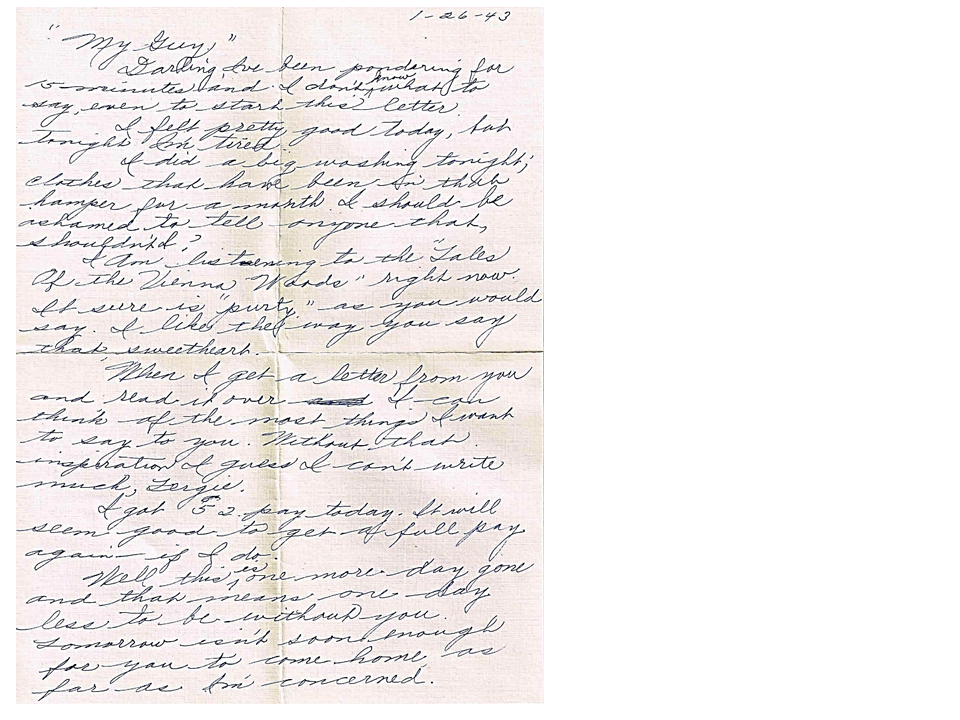 1-26-43
"My Guy,"
Darling, I've been pondering for
15 minutes and I don't know what to
say, even to start this letter.
I felt pretty good today, but
tonight I'm tired.
I did a big washing tonight;
clothes that have been in that
hamper for a month. I should be
ashamed to tell anyone that,
shouldn't I?
I am listening to the "Tales
Of the Vienna Woods" right now.
It sure is "purty," as you would
say. I like the way you say
that, sweetheart.
When I get a letter from you
and read it over and I can
think of the most things I want
to say to you. Without that
inspiration I guess I can't write
much,
I got 52 pay today. It will
seem good to get a full pay
again - if I do.
Well this is one more day gone
and that means one day
less to be without you.
Tomorrow isn't soon enough
for you to come home, as
far as I'm concerned.